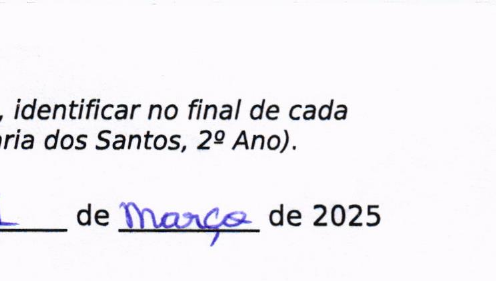 , identificar no final de cada
ria dos Santos, 2º Ano).
de Março de 2025